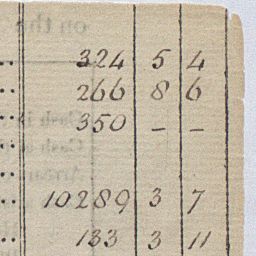 324 5 4
266 8 6
350 – –
10289 3 7
133 3 11